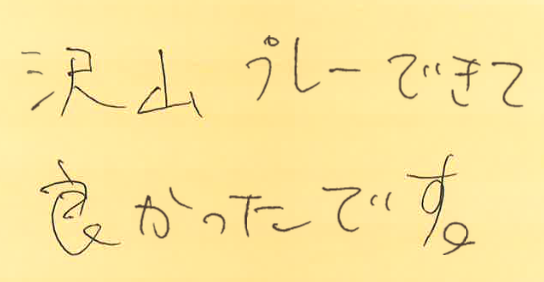 沢山 プレーできて
良かったです。